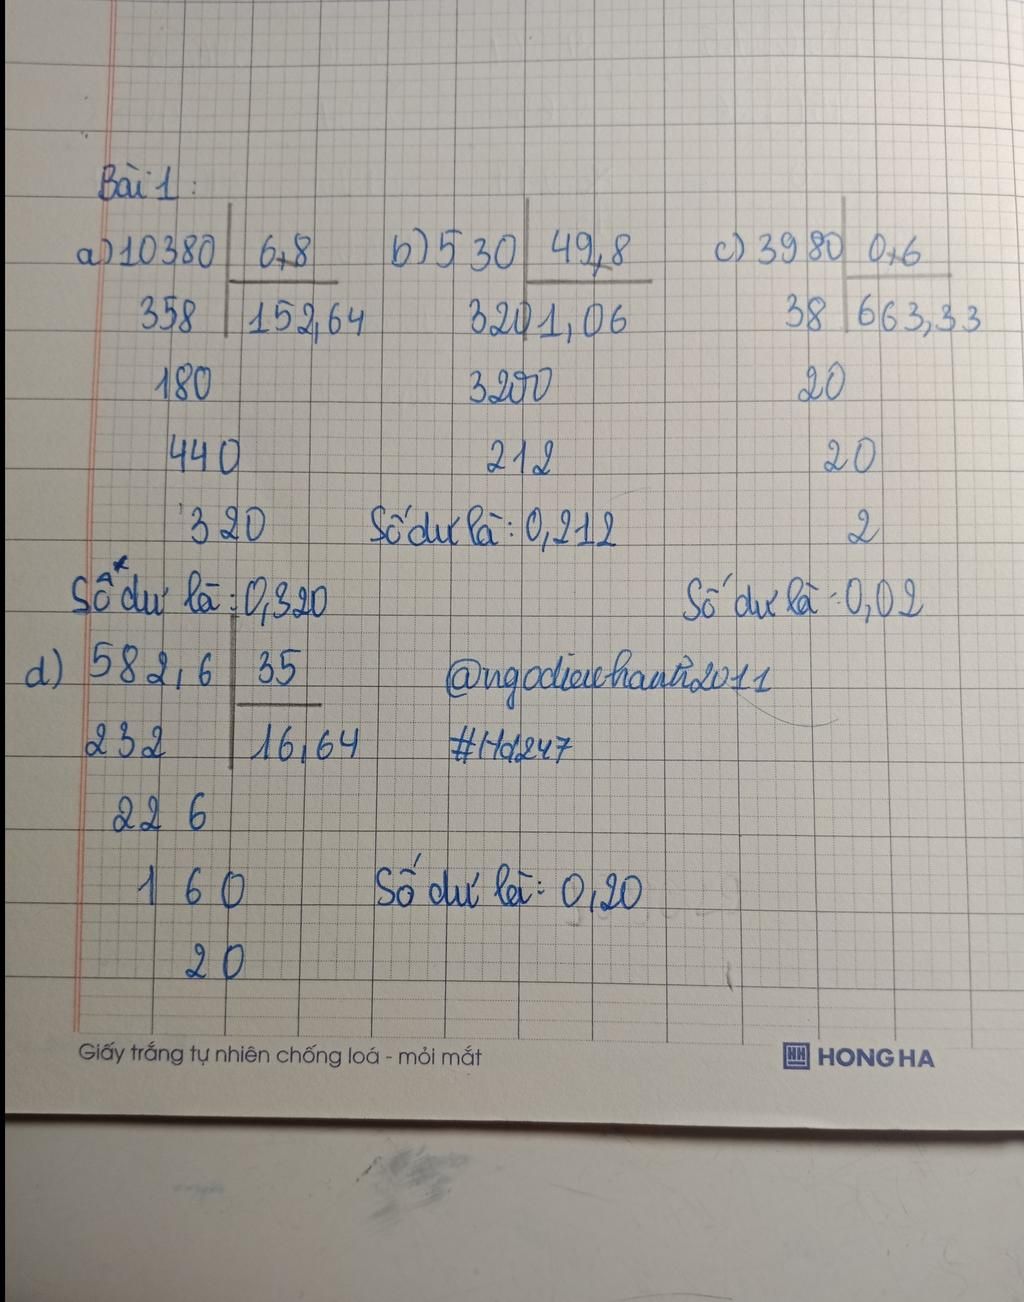 Bài 1 :
a) 10380 6,8 b) 530 49,8 c) 3980 0,6
358 152,64 320 1,06 38 663,33
180 3200 20
440 212 20
320 Số dư là : 0,212 2
Số dư là : 0,320 Số dư là : 0,02
d) 582,6 35 @ngodieukhanh2011
232 16,64 #Hd247
22 6
1 60 Số dư là : 0,20
20
Giấy trắng tự nhiên chống loá - mỏi mắt HH HONG HA